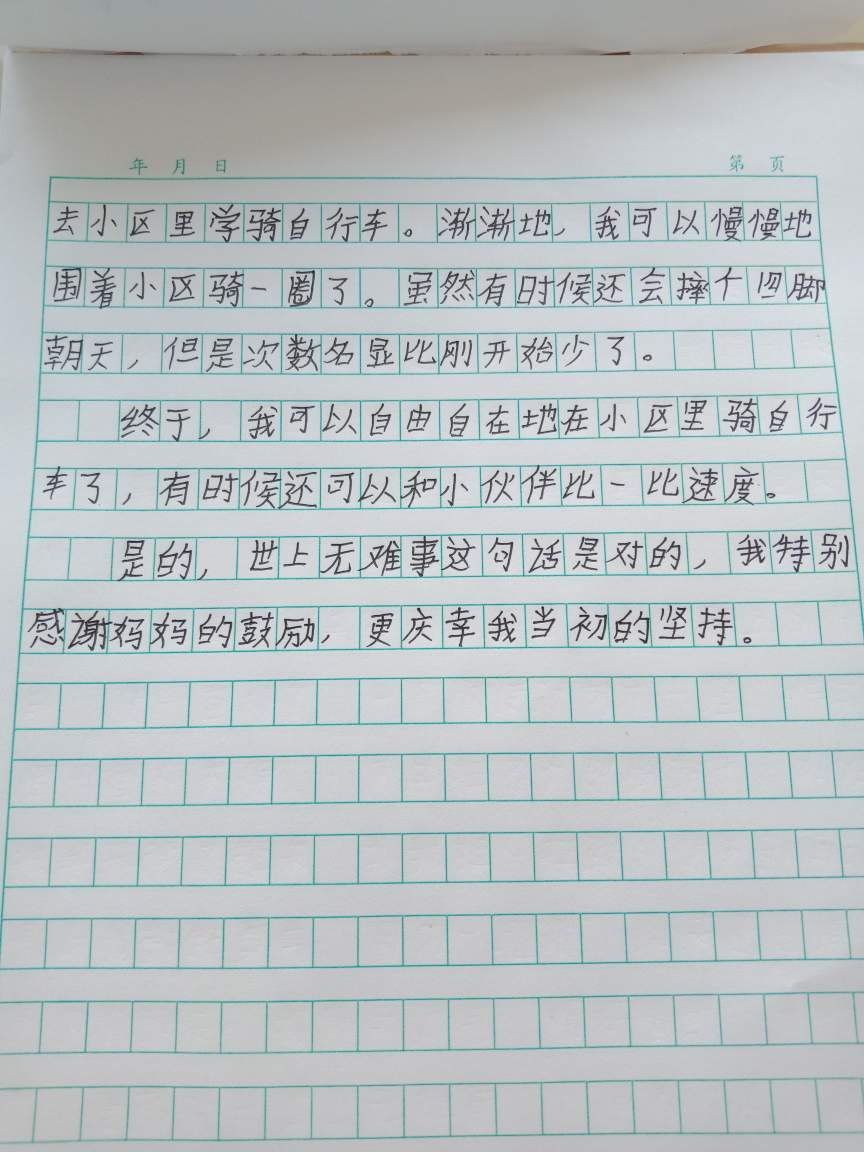 年 月 日 第 页
去小区里学骑自行车。渐渐地，我可以慢慢地
围着小区骑一圈了。虽然有时候还会摔个四脚
朝天，但是次数名显比刚开始少了。
终于，我可以自由自在地在小区里骑自行
车了，有时候还可以和小伙伴比一比速度。
是的，世上无难事这句话是对的，我特别
感谢妈妈的鼓励，更庆幸我当初的坚持。